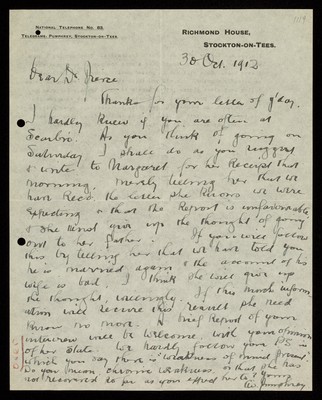 NATIONAL TELEPHONE No. 83.
TELEGRAMS, PUMPHREY, STOCKTON-ON-TEES.
RICHMOND HOUSE,
STOCKTON-ON-TEES.
30 Oct. 1912
Dear Dr Pierce
Thanks for your letter of y'day.
I hardly knew if you are often at
Scarbro. As you think of going on
Saturday I shall do as you suggest
& write to Margaret for her Receipt that
morning. Merely telling her that we
have Recd. the letter she knows we were
expecting & that the Report is unfavourable
& she must give up the thought of going
out to her father. If you will follow
this by telling her that we have told you
he is married again & the account of his
wife is bad. I think she will give up
the thought, willingly. If this much inform
ation will secure this result she need
know no more. A brief report of your
interview will be welcome, with your opinion
of her state. We hardly follow your P.S. in
which you say there is "weakness of mind present"
Do you mean chronic weakness, or that she has
not recovered so far as your expected her to?
Yours
W. Pumphrey